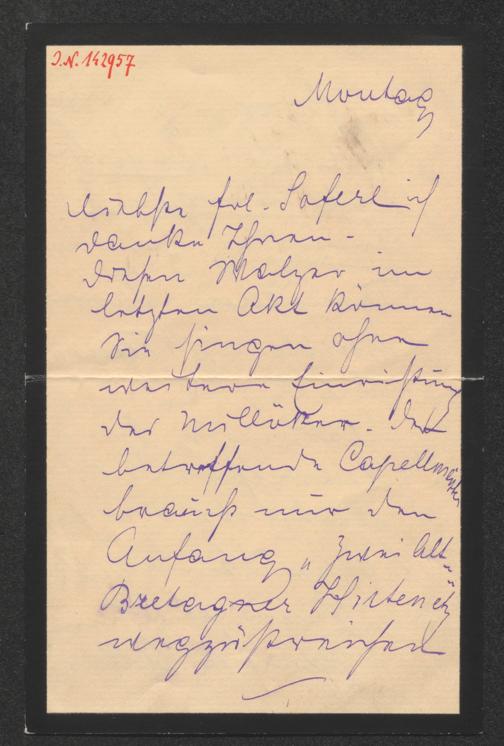 I.N. 142957
Montag
Liebste Frl. Saferl ich
danke Ihnen -
diesen Walzer im
letzten Akt können
Sie singen ohne
weitere Einrichtung
des Millöker. Der
betreffende Capellmeister
braucht nur den
Anfang „Zwei Alt-
Bretagner Hirten" etz
wegzustreichen